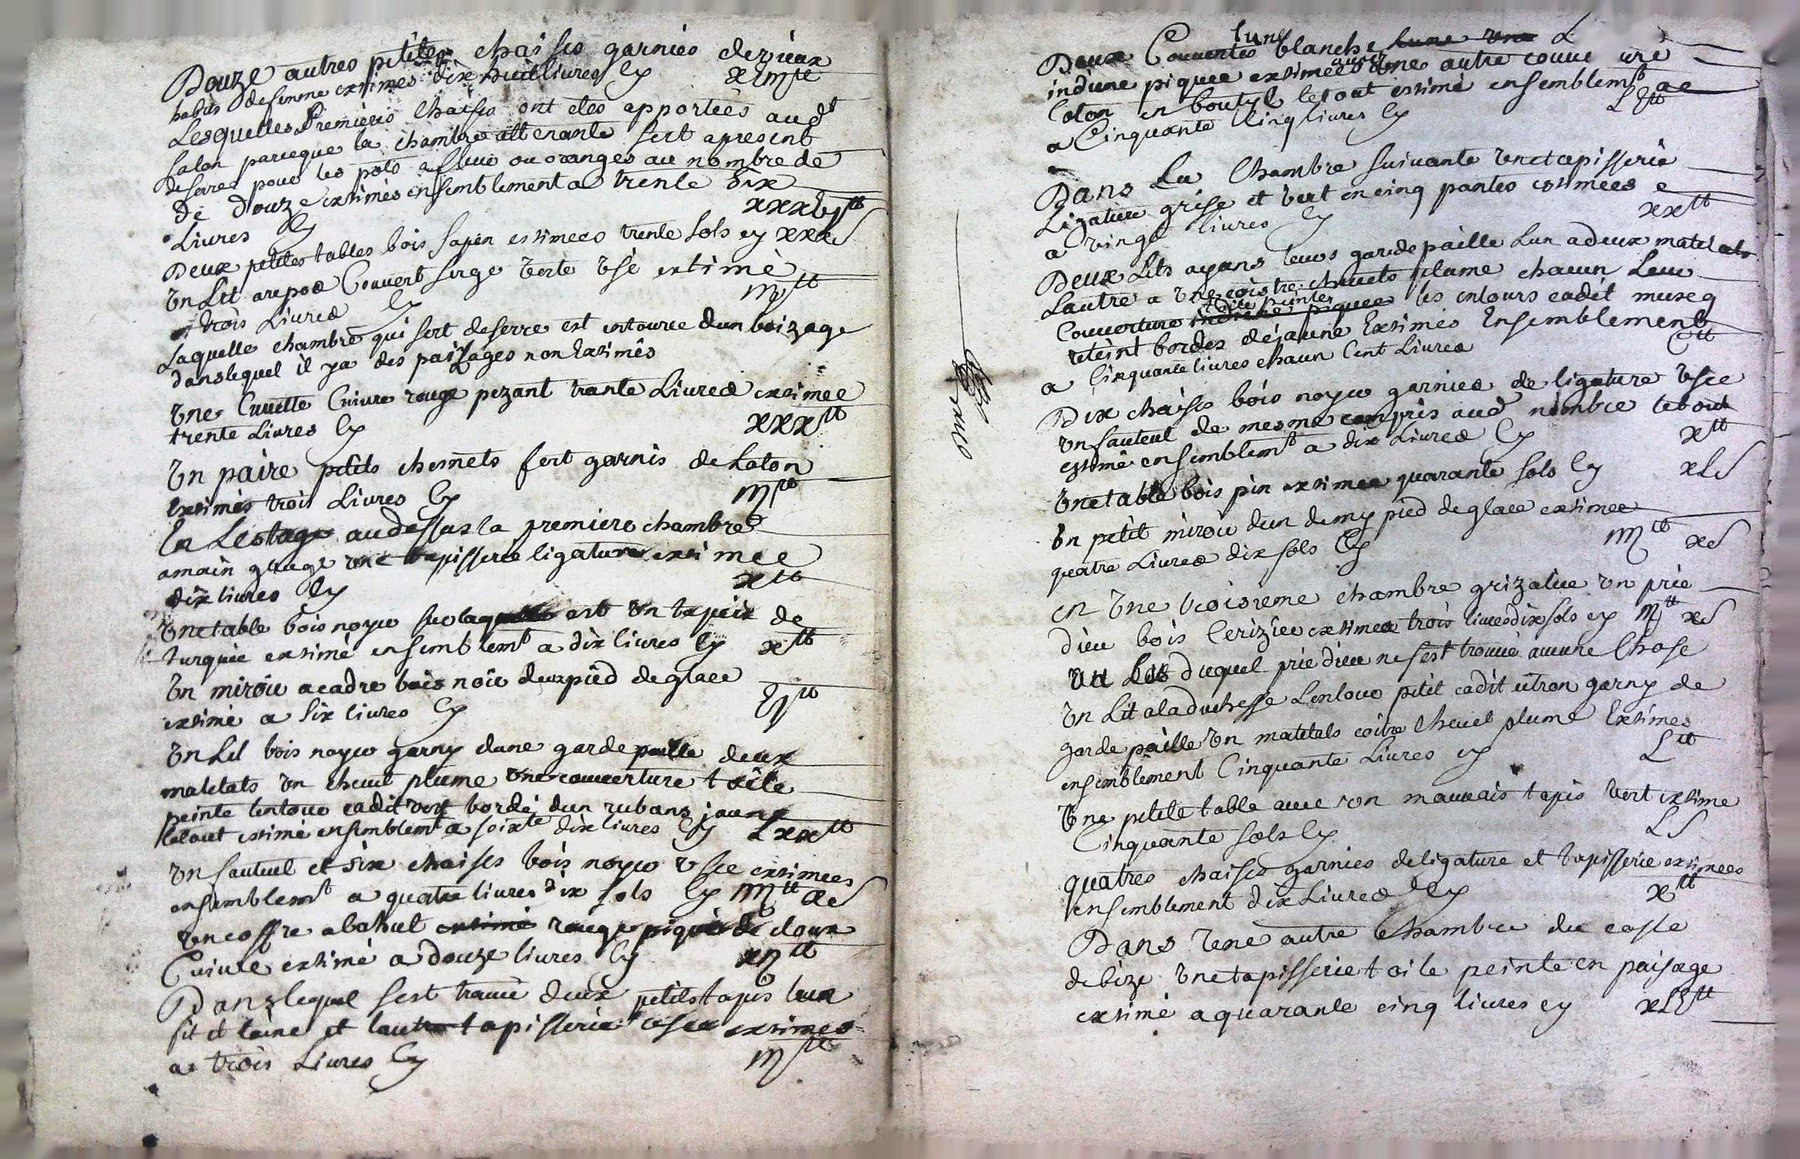 Douze autres petites chaises garnies de vieux
habits de femme extimés dix huit livres cy xviij tt
Lesquelles Premieres chaises ont étés apportées aud t
salon parceque la chambre attenante sert apresent
de serre pour les pots a fleur ou oranges au nombre de
de douze extimés ensemblement a trente six
Livres Cy xxxvj tt
Deux petites tables bois sapin estimees trente sols cy xxx s
Un Lit arepos Couvert serge verte usé extimé
trois Livres Cy iij tt
Laquelle chambre qui sert de serre est entource dun boizage
dans lequel il ya des paizages non Extimés
Une Cuvette Cuivre rouge pezant trante Livres extimee
trente Livres Cy xxx tt
Un paire petits chenets fert garnis de Laton
Extimés trois Livres Cy iij tt
En Lestage audessus la premiere chambre
amain gauge une tapisserie ligature extimee
dix livres Cy x tt
Une table bois noyer sur laquelle est Un tapix de
turquie extimé ensemblem t a dix livres Cy x tt
Un miroir a cadre bois noir deux pied de glace
extimé a Six livres Cy vj tt
Un Lit bois noyer garny dune garde paille deux
matelats un chevet plume une couverture toële
peinte lentour cadit vert bordé dun rubans jaune
letout estimé ensemblem t a soix te dix livres Cy Lxx tt
Un fauteuil et six chaises bois noyer usee extimees
ensemblem t a quatre livres dix sols Cy iiij tt x s
un coffre abahut extimé rouge piqué de cloux
Cuivre extimé a douze livres Cy xij tt
Dans lequel sest trouvé deux petits tapis lun
fil et laine et lautre tapisserie usee extimes
a trois Livres Cy iij tt
Deux Couvertes blanche lune
indienne piquee extimee avec une autre couverture
Coton en boutys letout estimé ensemblem t
a Cinquante Cinq livres Cy LV tt
Dans La Chambre suivante une tapisserie
Ligature grise et vert en cinq pantes estimees
a vingt livres Cy xx tt
Deux Lits ayans leurs garde paille Lun a deux matelats
Lautre a Une coitre chevets plume chacun Leur
Couverture toile peintes indiene piquee les entours cadit museq
reteint bordes de jaune Extimés Ensemblement
a Cinquante livres chacun Cent Livres C tt
Dix chaises bois noyer garnies de ligature Usee
un fauteuil de mesme compris aud nombre le tout
estimé ensemblem t a dix Livres Cy x tt
Une table bois pin extimee quarante sols Cy xL s
Un petit miroir dun demy pied de glace extimee
quatre Livres dix sols Cy iiij tt x s
en Une troisieme chambre grizalie un prie
dieu bois Cerizier extimee trois livres dix sols cy iij tt x s
duquel prie dieu ne sest trouvé aucune Chose
Un Lit a la duchesse Lentour petit cadit citron garny de
garde paille un matelets coitre Chevet plume Extimes
ensemblement Cinquante Livres cy L tt
Une petite table avec son mauvais tapis Vert extime
Cinquante sols Cy L s
quatres chaises garnies de ligature et tapisserie extimees
ensemblement dix Livres Cy x tt
Dans Une autre Chambre du coste
de bize Une tapisserie toile peinte en paisage
extimé a quarante cinq livres cy xLV tt